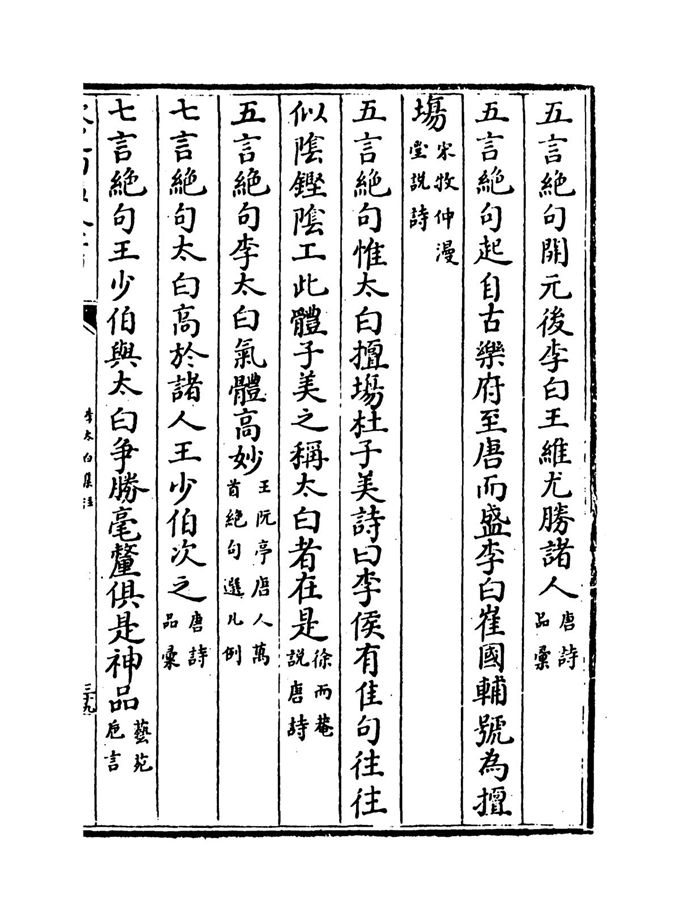 五言絶句開元後李白王維尤勝諸人唐詩品彙
五言絶句起自古樂府至唐而盛李白崔國輔號為擅
場宋牧仲漫堂説詩
五言絶句惟太白擅場杜子美詩曰李侯有佳句往往
似陰鏗陰工此體子美之稱太白者在是徐而菴説唐詩
五言絶句李太白氣體高妙王阮亭唐人萬首絶句選凡例
七言絶句太白高於諸人王少伯次之唐詩品彙
七言絶句王少伯與太白爭勝毫釐俱是神品藝苑巵言
李太白集注
三十九